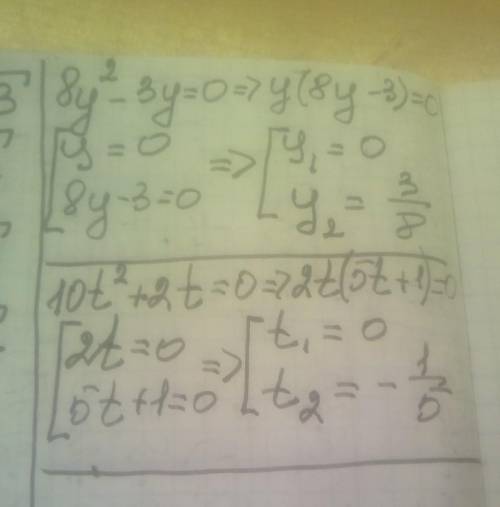 8y² - 3y = 0 => y(8y - 3) = 0
[y = 0 => [y₁ = 0
8y - 3 = 0 y₂ = 3/8
10t² + 2t = 0 => 2t(5t + 1) = 0
[2t = 0 => [t₁ = 0
5t + 1 = 0 t₂ = - 1/5